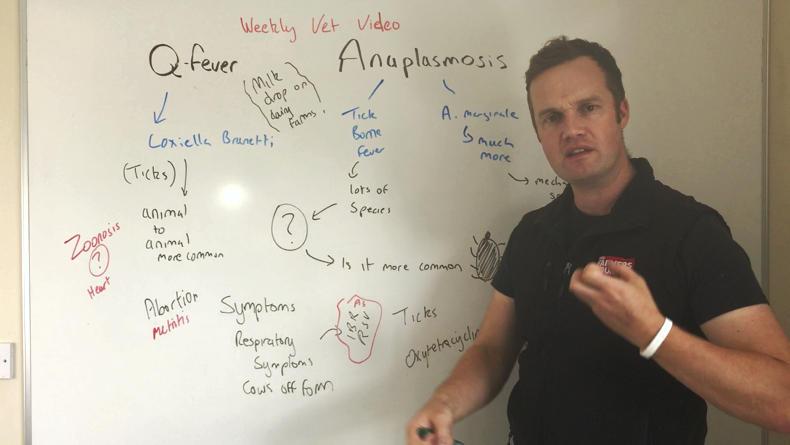 Weekly Vet Video
Q-fever
(Milk
drop on
dairy
farms.)
Anaplasmosis
Coxiella Brunetti
Tick
Borne
Fever
A. marginale
↳ much
more
→ mech
(Ticks)
animal
to
animal
more common
lots of
Species
?
Is it more common
Zoonosis
?
Heart
Abortion
Metritis
Symptoms
Respiratory
Symptoms
Cows off form
Ticks
Oxytetracyclin